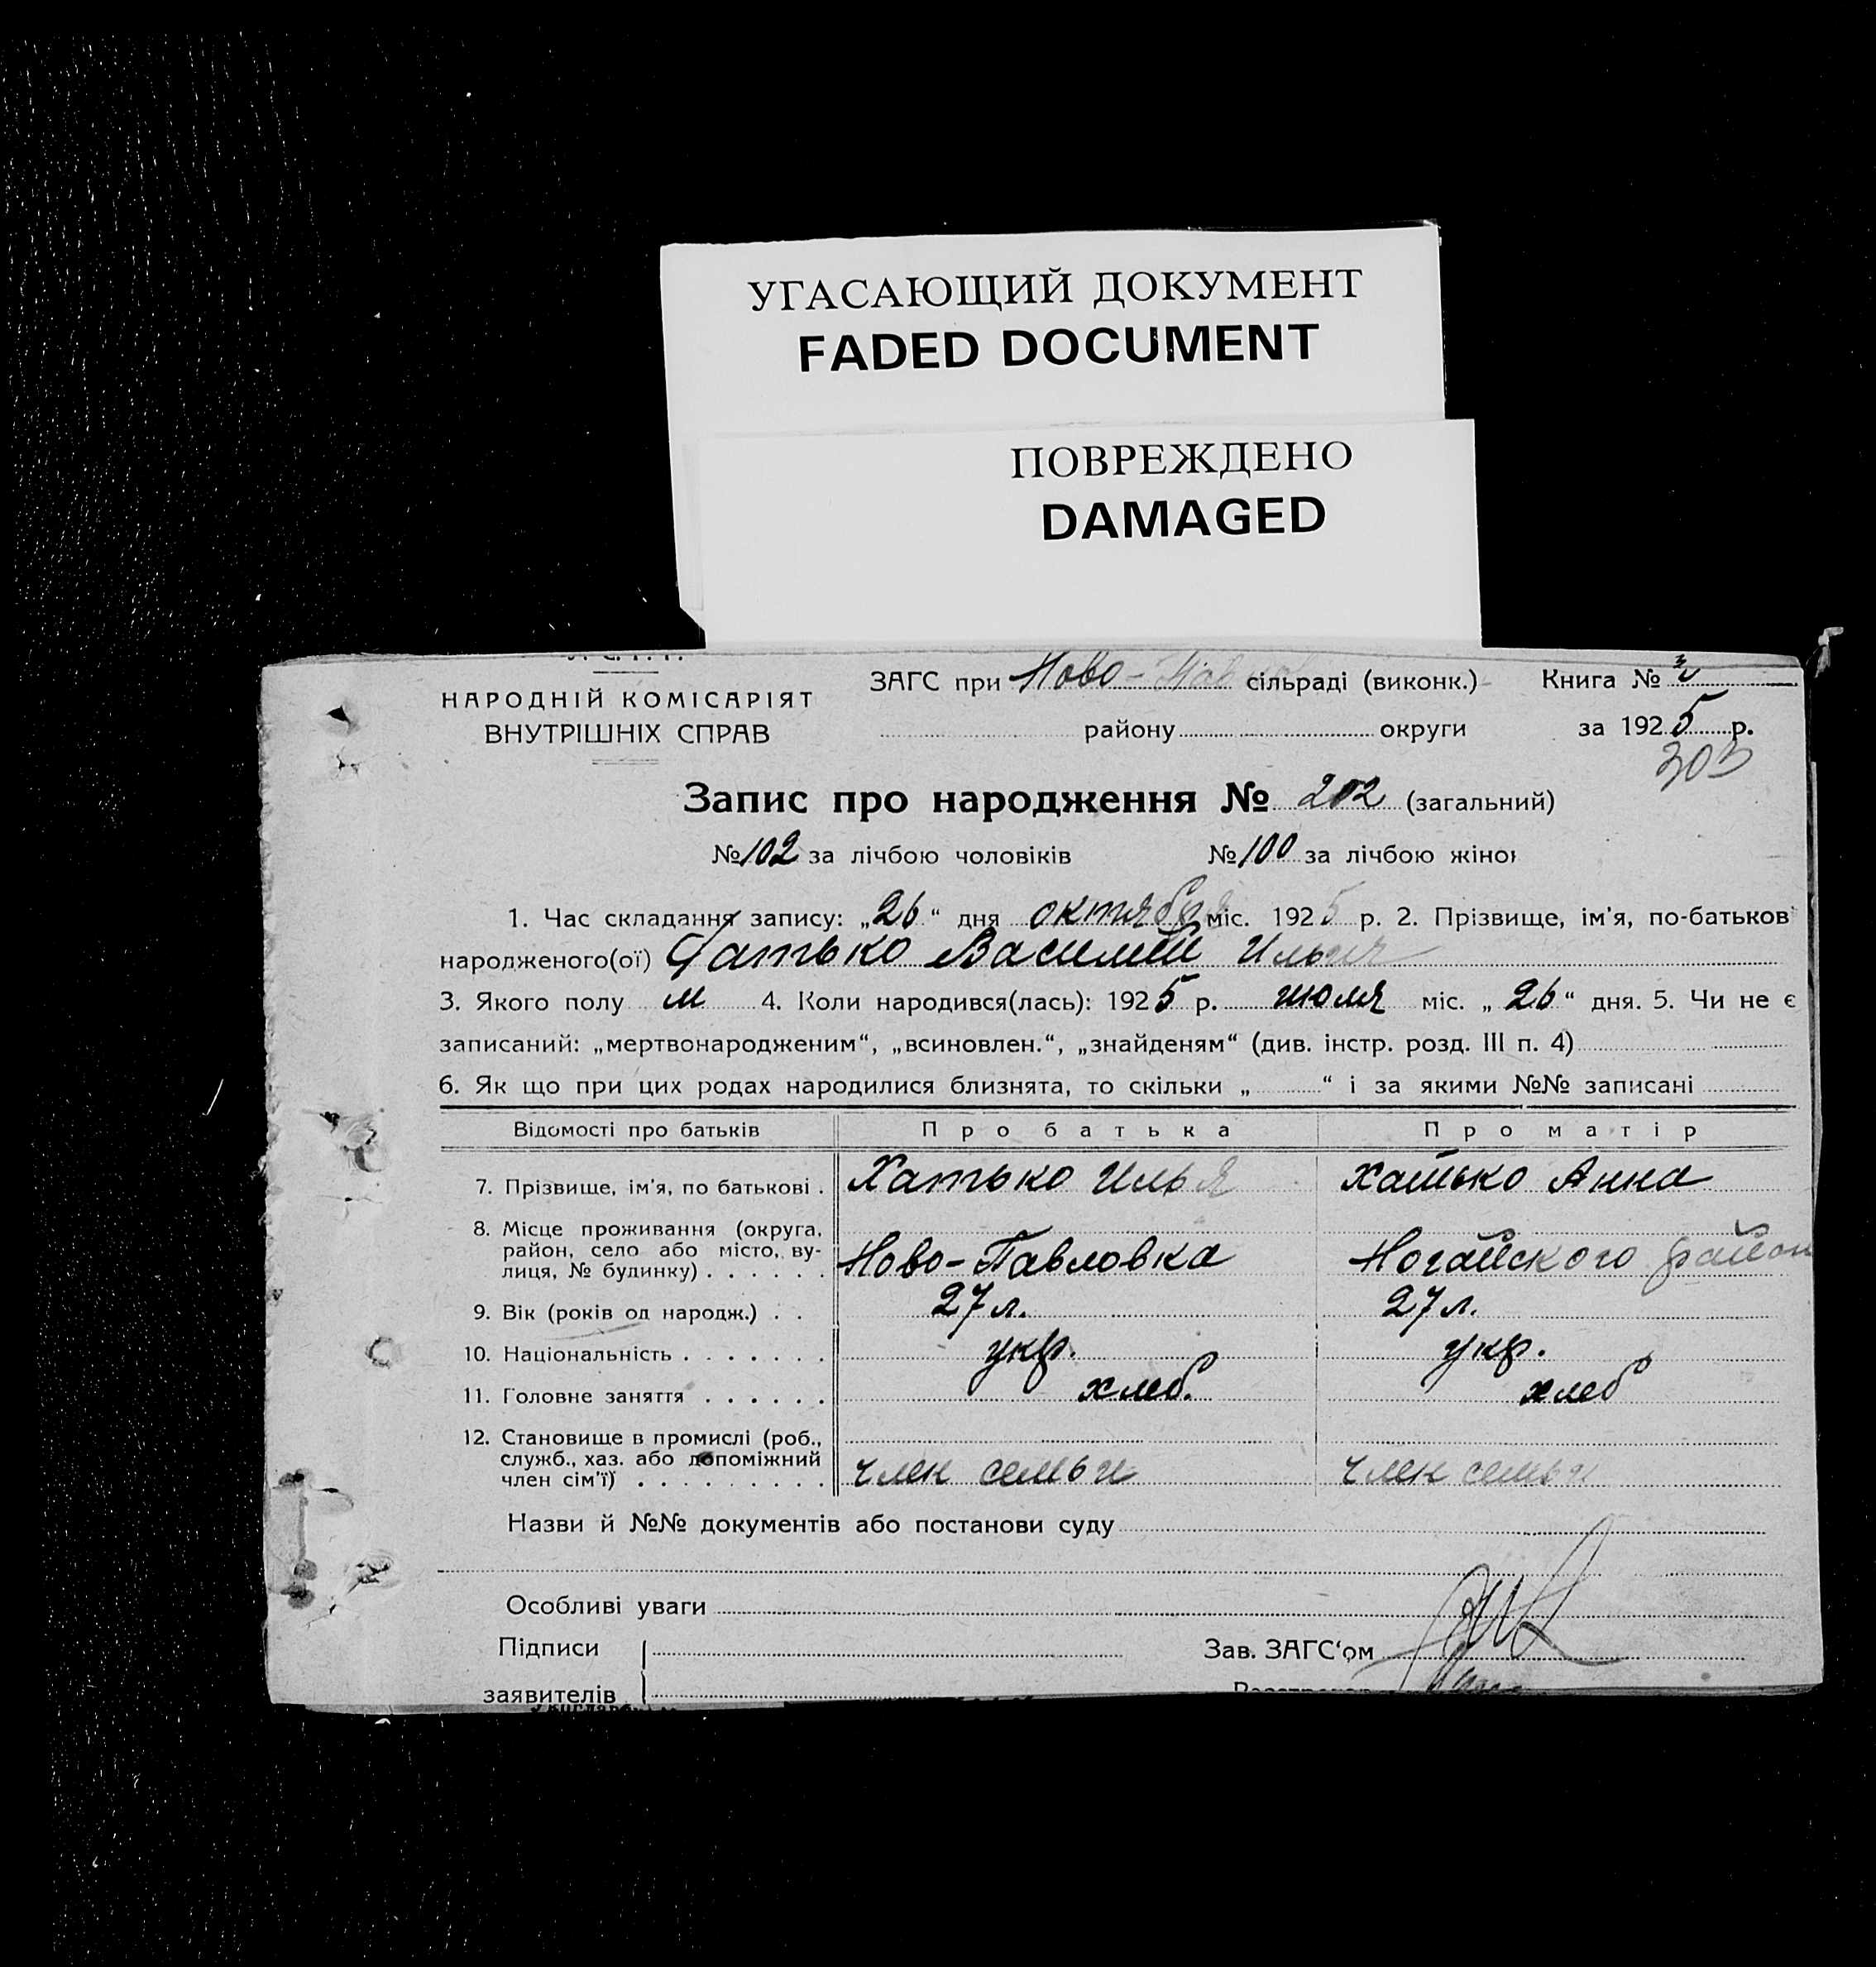 УГАСАЮЩИЙ ДОКУМЕНТ
FADED DOCUMENT
ПОВРЕЖДЕНО
DAMAGED
НАРОДНІЙ КОМІСАРІЯТ
ВНУТРІШНІХ СПРАВ
ЗАГС при Ново- сільраді (виконк.) Книга №
району округи за 1925 р.
303
Запис про народження № 202 (загальний)
№ 102 за лічбою чоловіків № 100 за лічбою жінок
1. Час складання запису: „26“ дня октября міс. 1925 р. 2. Прізвище, ім'я, по-батьков
народженого(ої) Хатько Василий Ильич
3. Якого полу м 4. Коли народився(лась): 1925 р. июля міс. „26“ дня. 5. Чи не є
записаний: „мертвонародженим“, „всиновлен.“, „знайденям“ (див. інстр. розд. III п. 4)
6. Як що при цих родах народилися близнята, то скільки „ “ і за якими №№ записані
Відомості про батьків Про батька Про матір
7. Прізвище, ім'я, по батькові . Хатько Илья Хатько Анна
8. Місце проживання (округа,
район, село або місто, ву-
лиця, № будинку) . . . . . . Ново-Павловка Ногайского район
9. Вік (років од народж.) . . 27 л. 27 л.
10. Національність . . . . . . . укр. укр.
11. Головне заняття . . . . . . хлеб. хлеб
12. Становище в промислі (роб.,
служб., хаз. або допоміжний
член сім'ї) . . . . . . . . . член семьи член семьи
Назви й №№ документів або постанови суду
Особливі уваги
Підписи Зав. ЗАГС'ом
заявителів